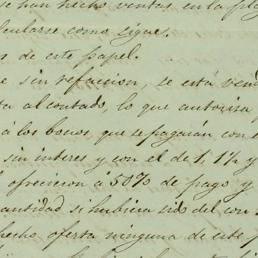 se han hecho ventas en la pla
cularse como sigue.
s de este papel.
e sin refaccion, se está vend
ta al contado, lo que autoriza
á los bonos, que se pagarán con
sin interes y con el de 1, 1½ y
ofrecieron á 50% de pago y
antidad si hubiera sido del con
hecho oferta ninguna de este p